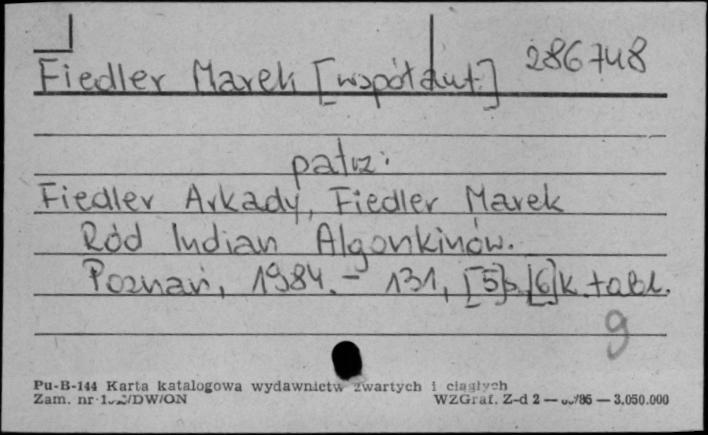 Fiedler Marek [współaut.] 286748
patrz:
Fiedler Arkady, Fiedler Marek
Ród Indian Algonkinów.
Poznań, 1984. - 131, [5]s. [6]k. tabl.
9
Pu-B-144 Karta katalogowa wydawnictw zwartych i ciągłych
Zam. nr /DW/ON WZGraf. Z-d 2 — /86 — 3.050.000